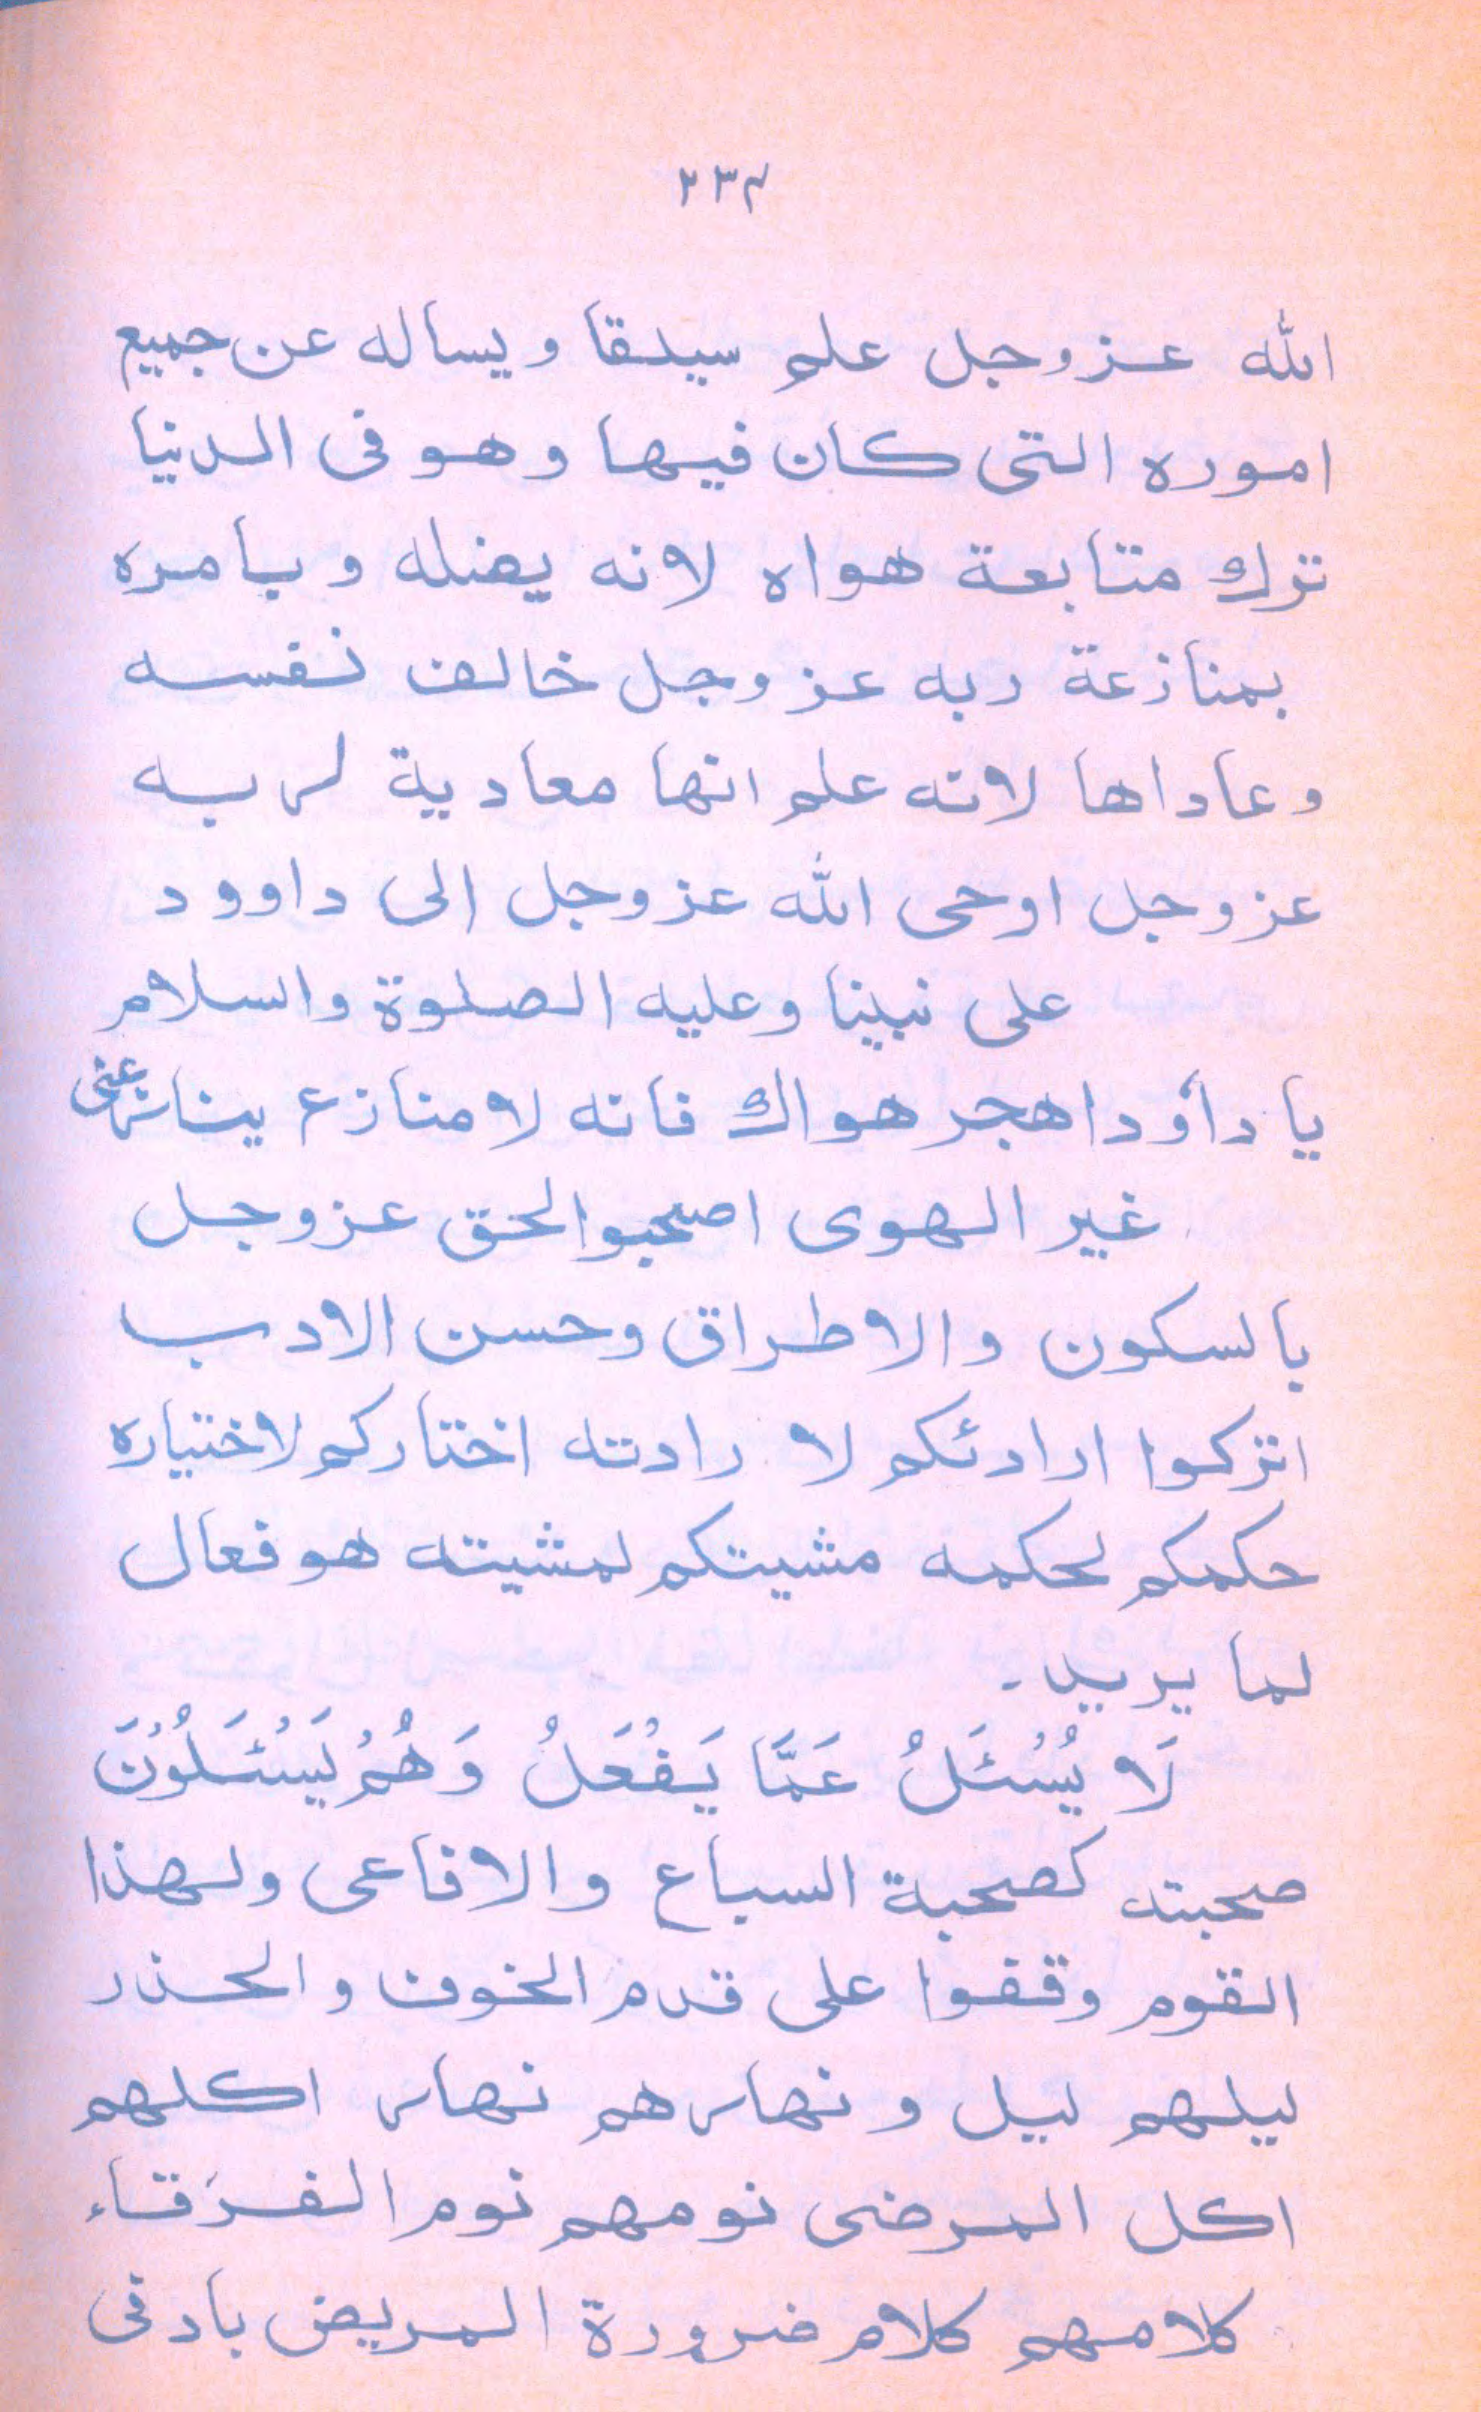 ٢٣٤
الله عزوجل علم سيلقا ويساله عن جميع
اموره التى كان فيها وهو فى الدنيا
ترك متابعة هواه لانه يضله ويامره
بمنازعة ربه عزوجل خالف نفسه
وعاداها لانه علم انها معادية لربه
عزوجل اوحى الله عزوجل الى داوود
على نبينا وعليه الصلوة والسلام
يا داؤد اهجر هواك فانه لا منازع ينازعنى
غير الهوى اصحبوا الحق عزوجل
بالسكون والاطراق وحسن الادب
اتركوا ارادئكم لا رادته اختاركم لاختياره
حكمكم لحكمه مشيتكم لمشيته هو فعال
لما يريد۔
لَا يُسْئَلُ عَمَّا يَفْعَلُ وَهُمْ يَسْئَلُوْنَ
صحبته كصحبة السباع والافاعى ولهذا
القوم وقفوا على قدم الخوف والحذر
ليلهم ليل ونهارهم نهار اكلهم
اكل المرضى نومهم نوم الغرقاء
كلامهم كلام ضرورة المريض بادفى